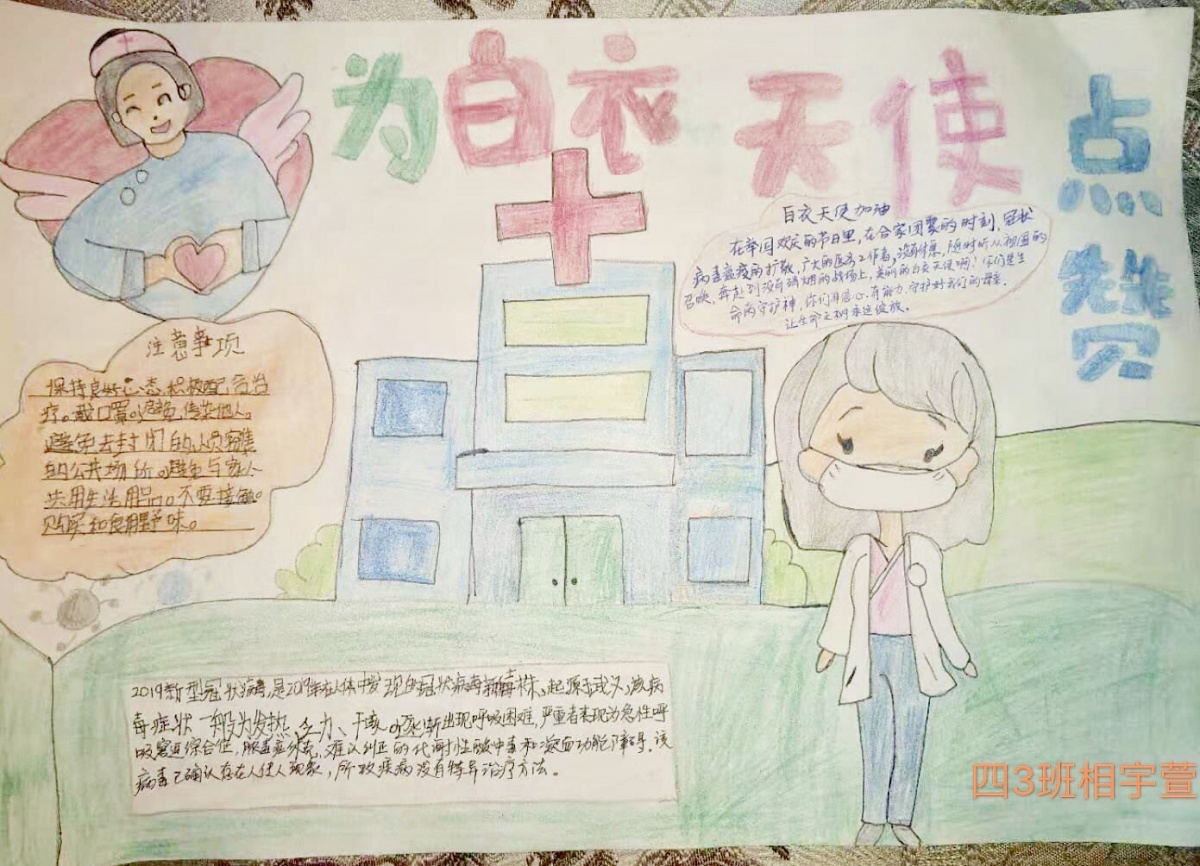 为白衣天使
点赞
白衣天使加油
在举国欢庆的节日里,在合家团聚的时刻,冠状
病毒蔓疫两扩散,广大的医务工作者,没有休息,随时听从祖国的
召唤,奔赴到没有硝烟的战场上,美丽的白衣天使啊!你们是生
命的守护神,你们有信心,有能力,守护好我们的母亲,
让生命之树永远绽放。
注意事项
保持良好心态积极配合治
疗。戴口罩。避免传染他人。
避免去封闭的人员密集
的公共场所。避免与家人
共用生活用品。不要接触。
购买和食用野味。
2019新型冠状病毒,是2019年在人体中发现的冠状病毒新毒株。起源于武汉,该病
毒症状一般为发热、乏力、干咳。逐渐出现呼吸困难,严重者表现为急性呼
吸窘迫综合征、脓毒症休克,难以纠正的代谢性酸中毒和凝血功能障碍。该
病毒已确认存在人传人现象,所致疾病没有特异治疗方法。
四3班相宇萱